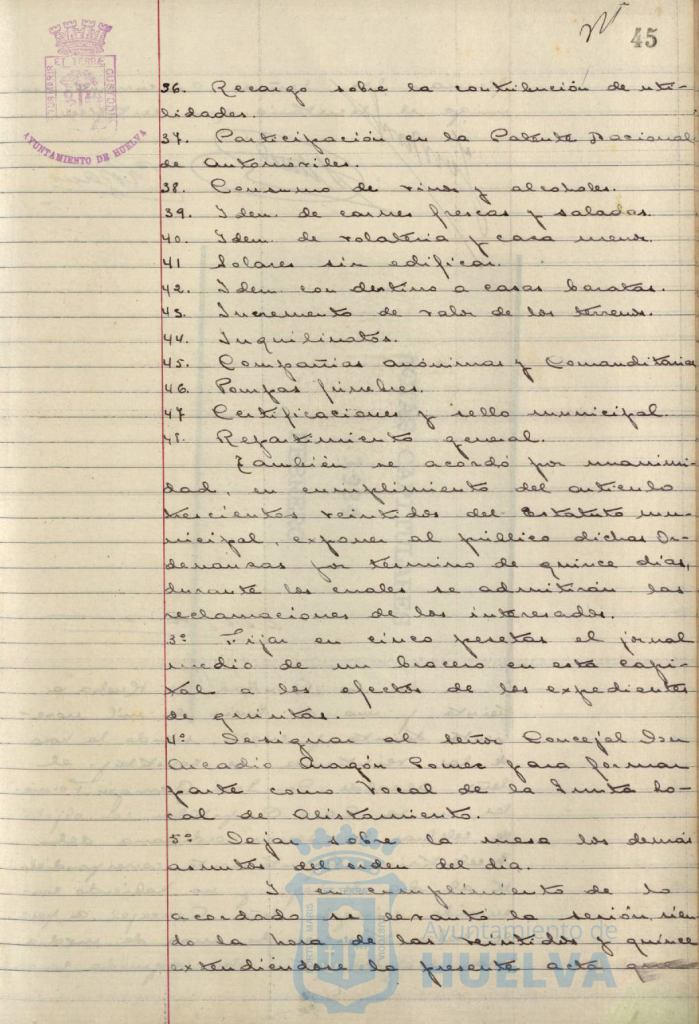 45
PORTUS MARIS ET TERRÆ CUSTODIA
AYUNTAMIENTO DE HUELVA
36. Recargo sobre la contribución de uti-
lidades.
37. Participación en la Patente Nacional
de Automóviles.
38. Consumo de vinos y alcoholes.
39. Idem. de carnes frescas y saladas.
40. Idem. de volateria y caza menor.
41 Solares sin edificar.
42. Idem. con destino a casas baratas.
43. Incremento de valor de los terrenos.
44. Inquilinatos.
45. Compañias anónimas y Comanditarias
46. Pompas fúnebres.
47 Certificaciones y sello municipal.
48. Repartimiento general.
También se acordó por unanimi-
dad, en cumplimiento del articulo
trescientos veintidos del Estatuto mu-
nicipal, exponer al público dichas Or-
denanzas por término de quince dias,
durante los cuales se admitirán las
reclamaciones de los interesados.
3º Fijar en cinco pesetas el jornal
medio de un bracero en esta capi-
tal a los efectos de los expedientes
de quintas.
4º Designar al señor Concejal Don
Arcadio Aragón Gomez para formar
parte como Vocal de la Junta Lo-
cal de Alistamiento.
5º Dejar sobre la mesa los demás
asuntos del orden del dia.
Y en cumplimiento de lo
acordado se levantó la sesión, sien-
do la hora de las veintidos y quince
extendiéndose la presente acta que
Ayuntamiento de
HUELVA